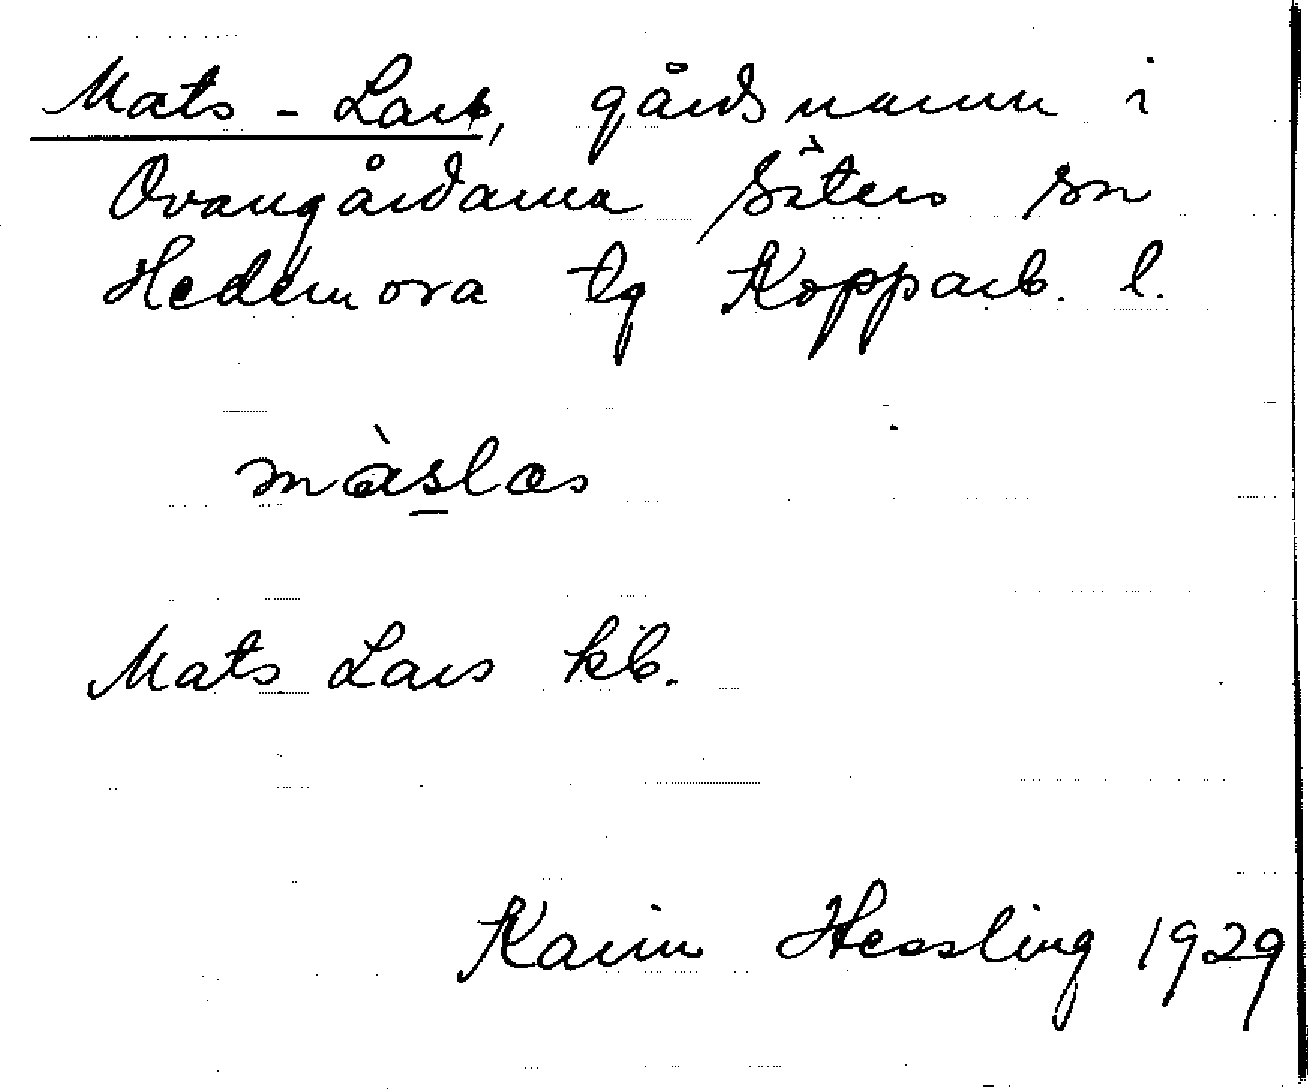 Mats-Lars, gårdsnamn i
Ovangårdarna Säters sn
Hedemora tg Kopparb. l.
màslas
Mats Lars kb.
Karin Hessling 1929